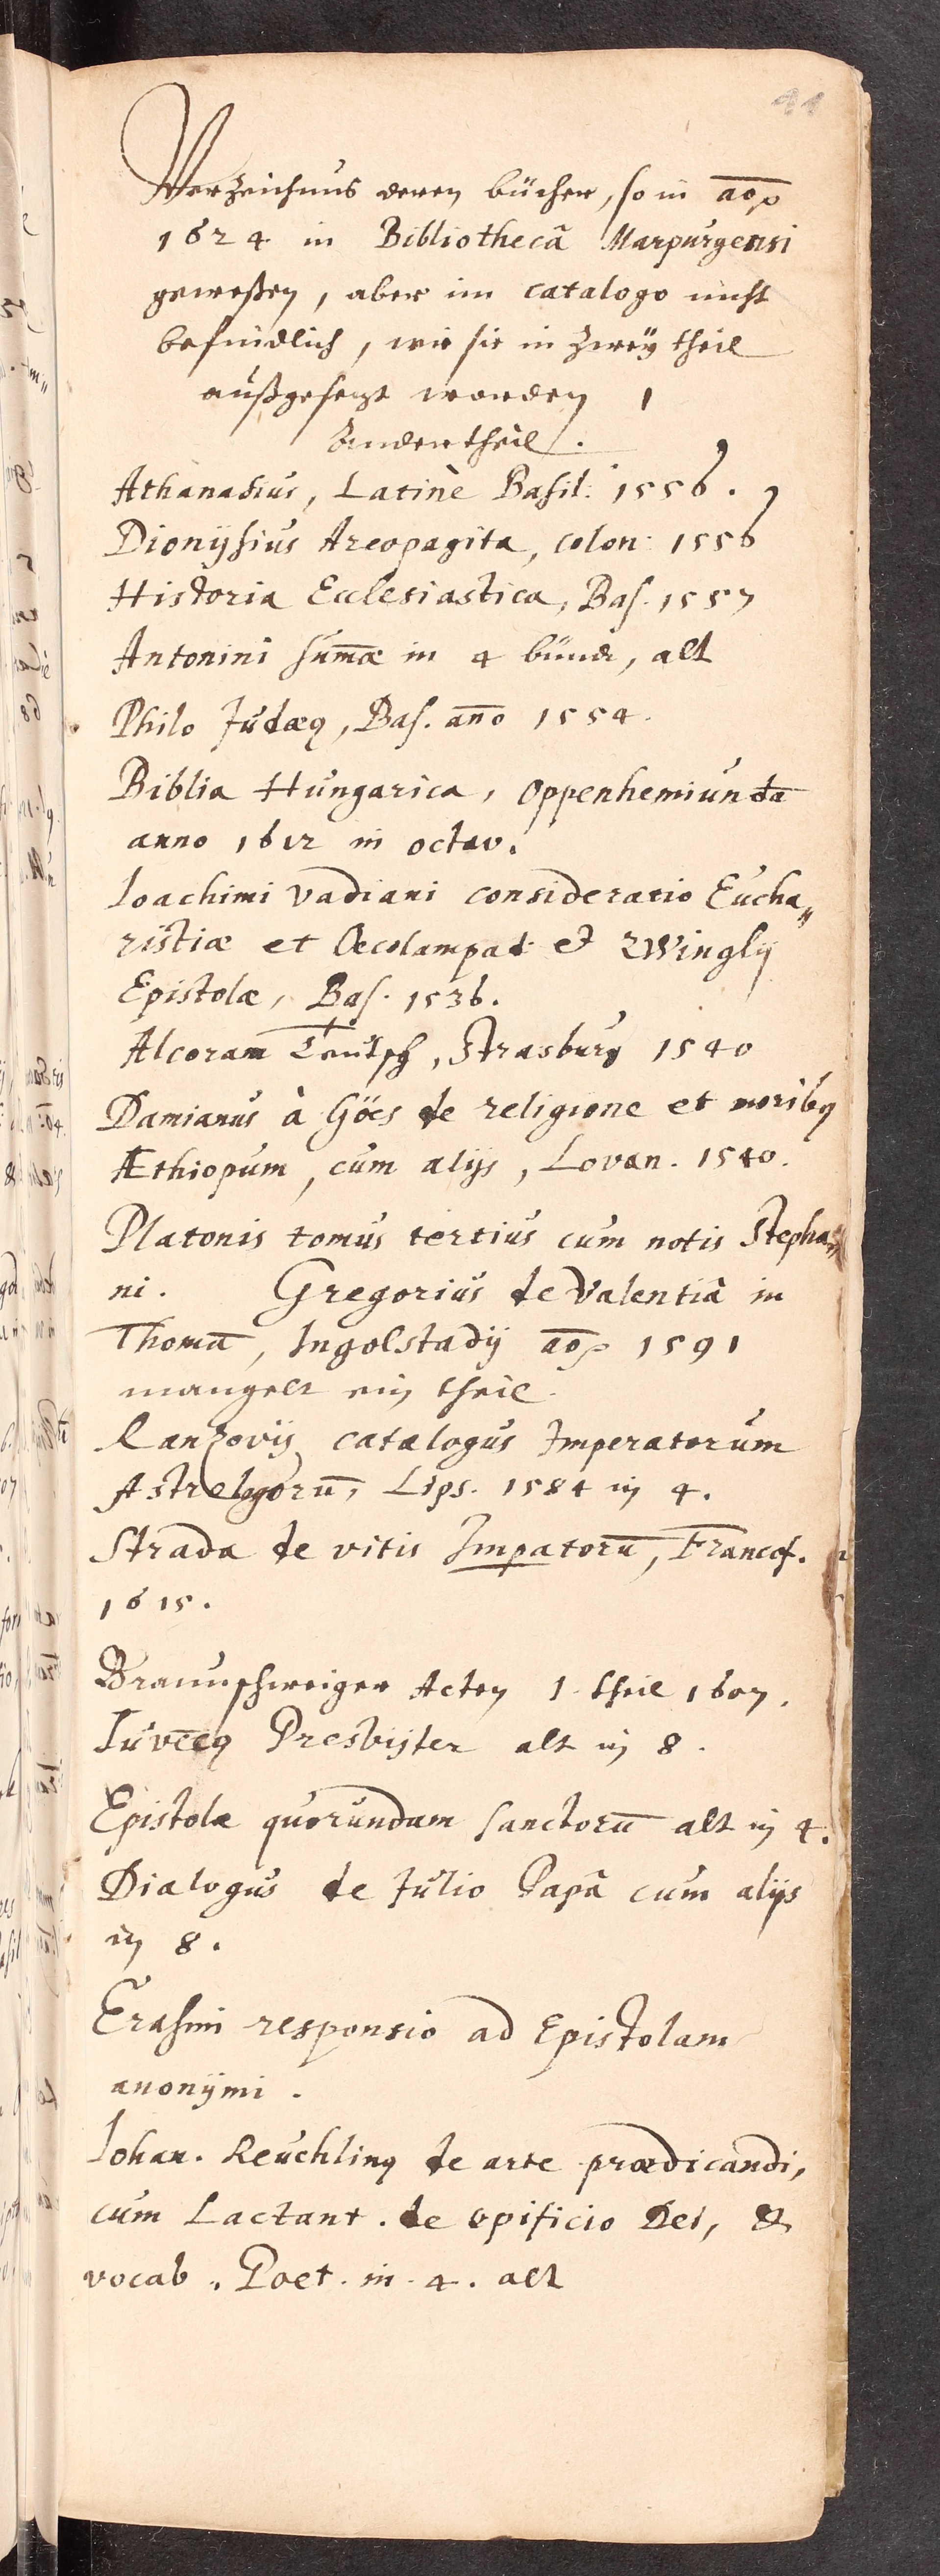 41
Verzeichnus deren bücher, so in a͞o͞o
1624 in Bibliothecâ Marpurgensi
geweßen, aber im catalogo nicht
befindlich, wie sie in zweÿ theil
außgesezt worden 1
Ander theil.
Athanasius, Latinè Basil: 1556.
Dionÿsius Areopagita, colon: 1556
Historia Ecclesiastica, Bas. 1557
Antonini sum̄æ in 4 bünd, alt
Philo Judæq, Bas. an̄o 1554.
Biblia Hungarica, Oppenhemiun da
anno 1612 in octav.
Ioachimi Vadiani consideratio Eucha„
ristiæ et Oecolampad: et Zwinglij
Epistolæ, Bas. 1536.
Alcoram Teutsch, Strasburg 1540
Damianus à Göes de religione et moribq
Æthiopum, cum alijs, Lovan. 1540.
Platonis tomus tertius cum notis Stepha„
ni. Gregorius de Valentiâ in
Thomā, Ingolstadij a͞o͞o 1591
mangelt ein theil.
Ranzovij catalogus Imperatorum
Astrologorū, Lips. 1584 in 4.
Strada de vitis Impatorū, Francof.
1615.
Braunschweiger Acten 1. theil 1607.
Iuvēcq Presbÿter alt in 8.
Epistolæ quorundam sanctorū alt in 4.
Dialogus de Julio Papâ cum alijs
in 8.
Erasmi responsio ad Epistolam
anonÿmi.
Iohan. Reuchlinq de arte prædicandi,
cum Lactant. de opificio Dei, &
vocab. Poet. in. 4. alt